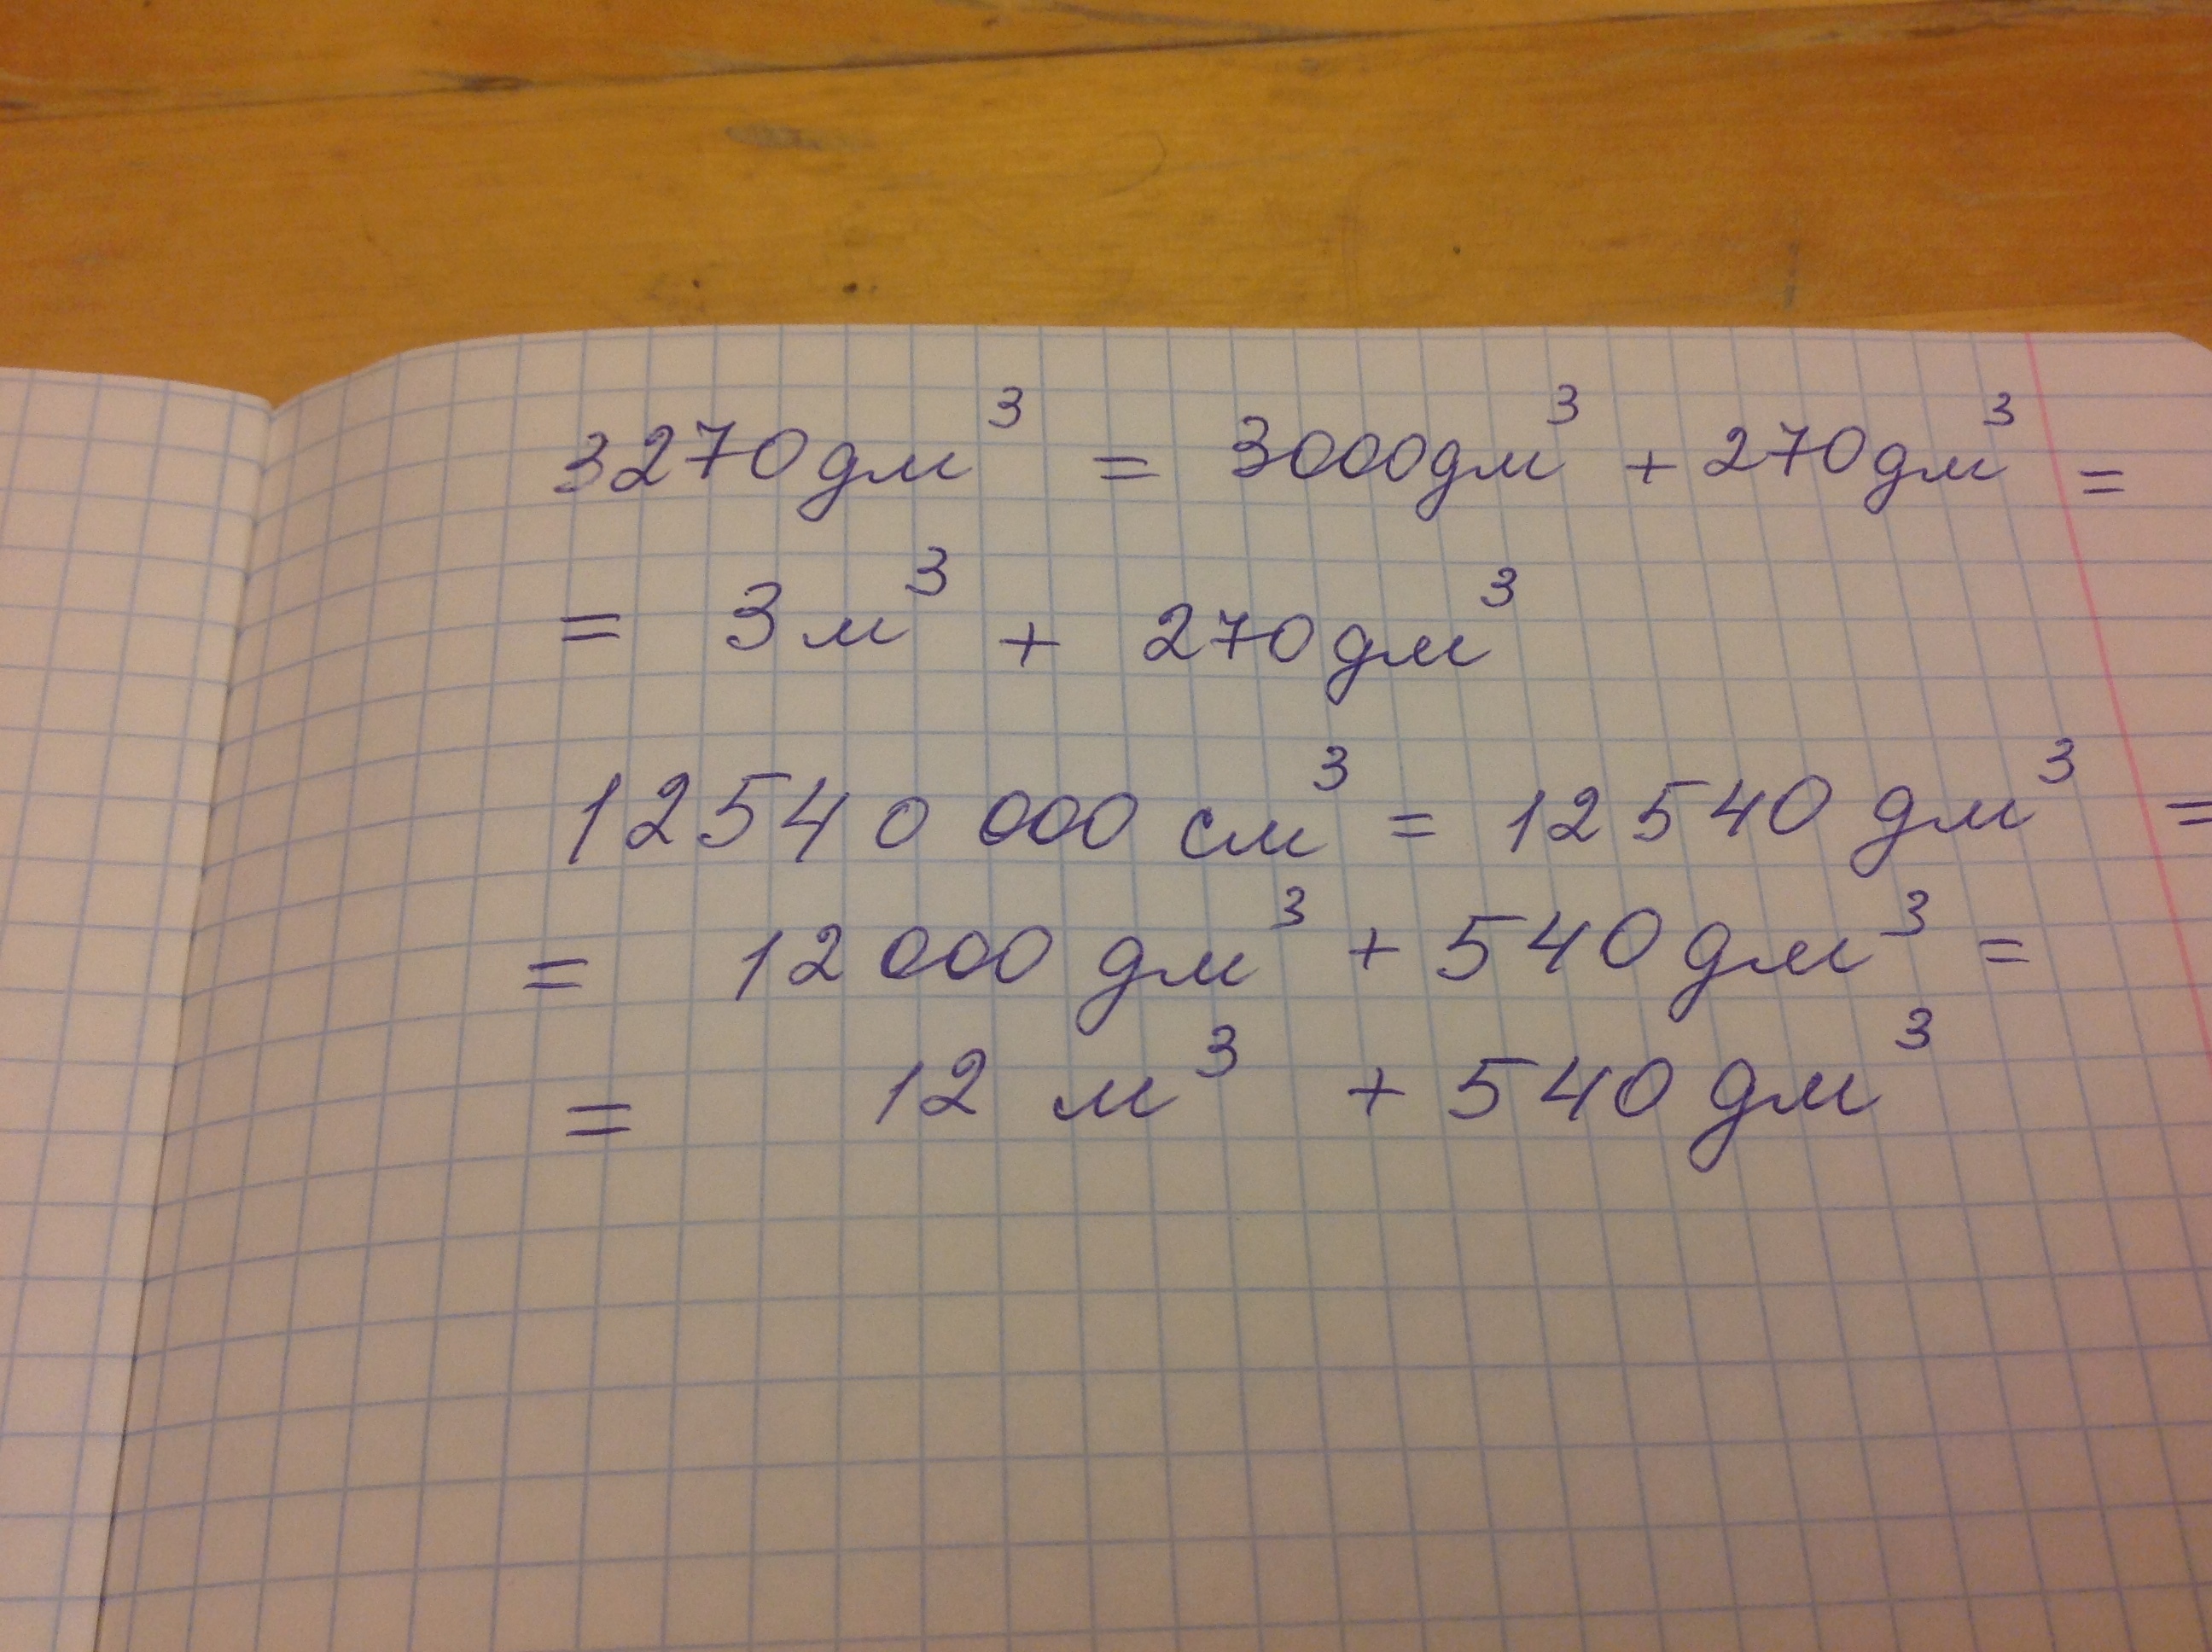 3270дм³ = 3000дм³ + 270дм³ =
= 3м³ + 270дм³
12540 000 см³ = 12 540 дм³ =
= 12 000 дм³ + 540 дм³ =
= 12 м³ + 540 дм³